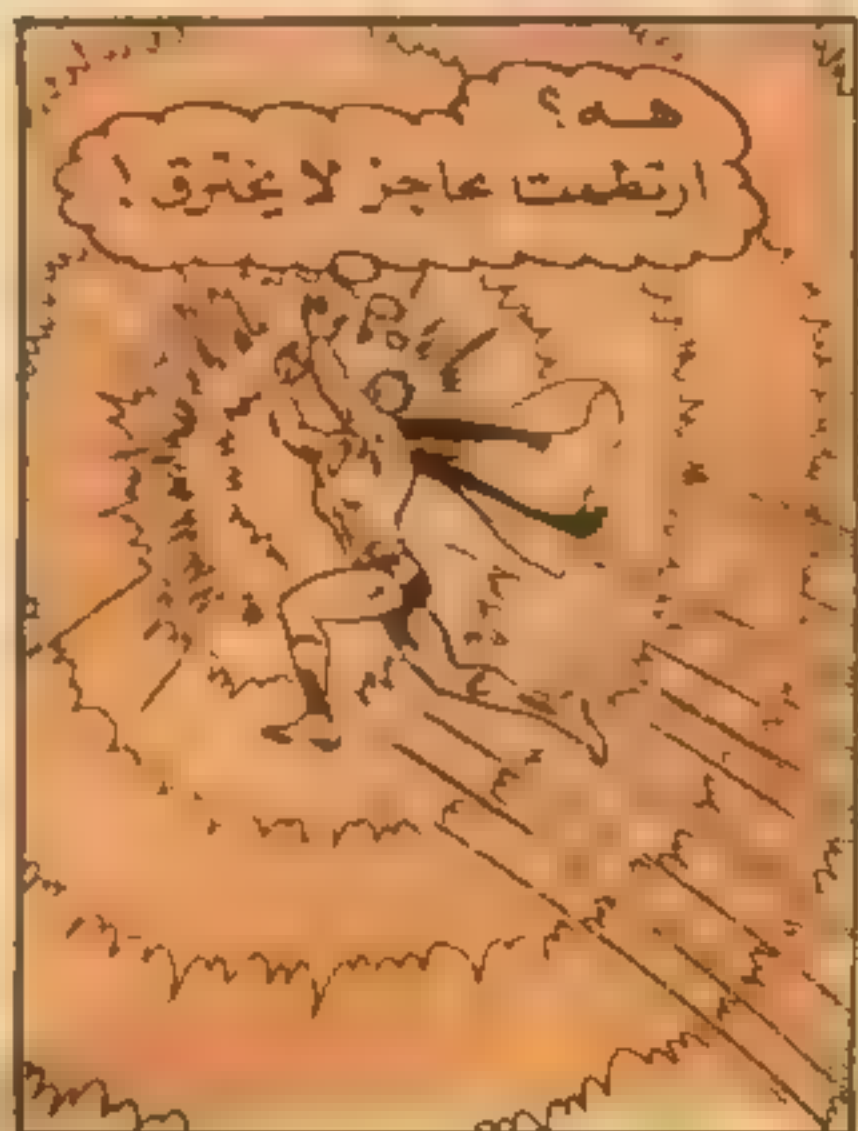 هه ؟
ارتطمت بحاجز لا يخترق !